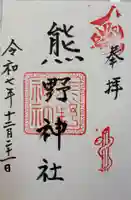 奉拝
熊野神社
令和七年十二月二十一日